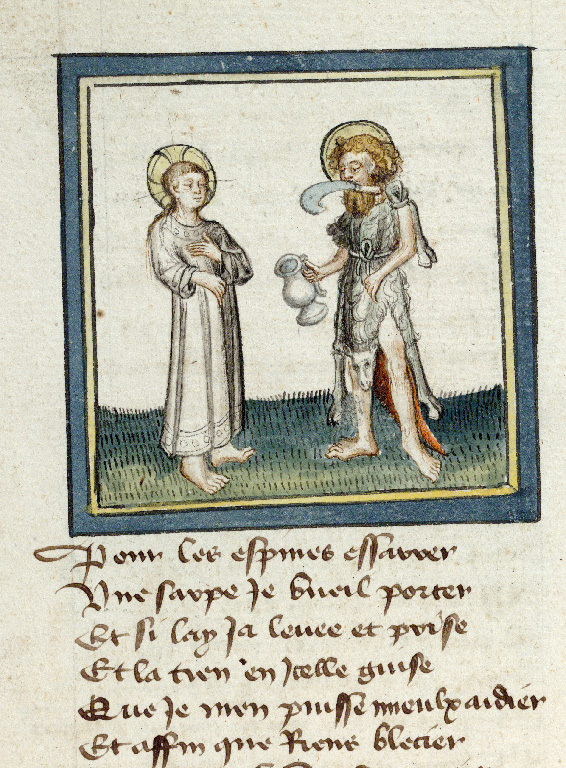 Pour les espines essarter
Une sarpe Je vueil porter
Et si lay Ja levee et prise
Et la tien en Jcelle guise
Que Je men puisse mieulx aidier
Et affin que Riens blecier